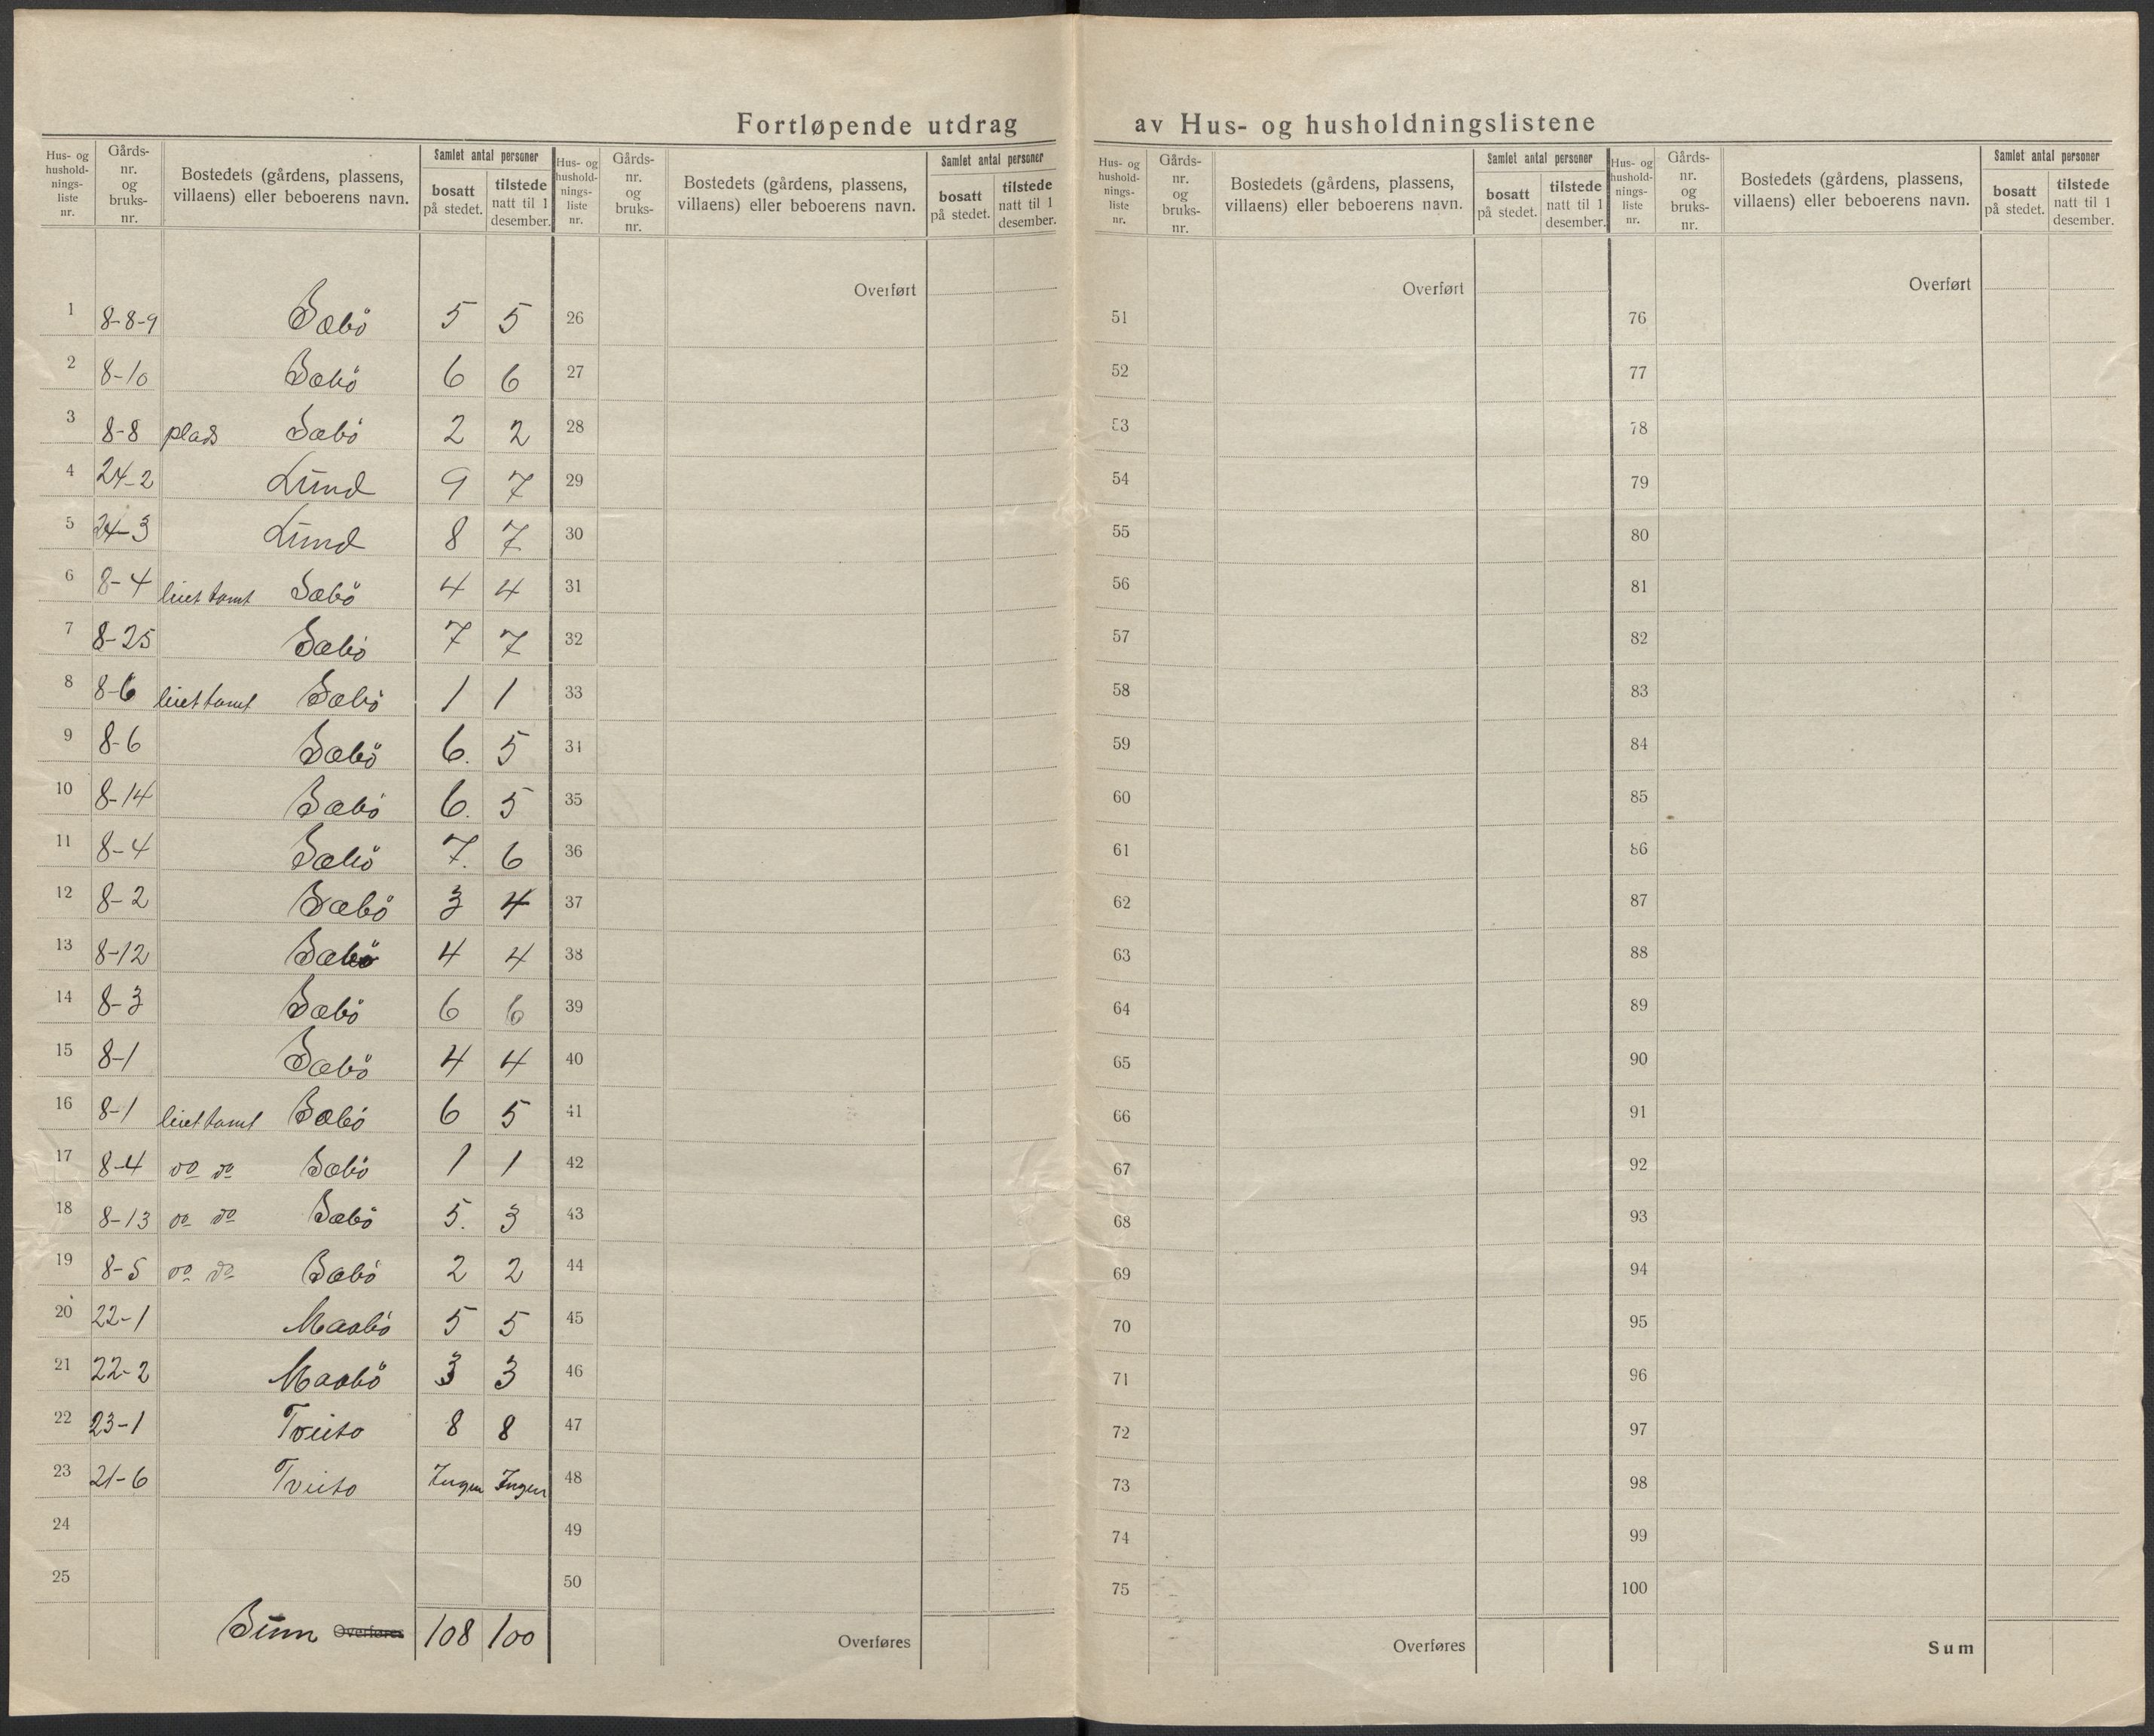 Fortløpende utdrag av Hus- og husholdningslistene
Hus- og hushold-nings-liste nr. | Gårds-nr. og bruks-nr. | Bostedets (gårdens, plassens, villaens) eller beboerens navn. | Samlet antal personer | bosatt på stedet. | tilstede natt til 1 desember.
1 8-8-9 Sæbö 5 5
2 8-10 Sæbö 6 6
3 8-8 plads Sæbö 2 2
4 24-2 Lund 9 7
5 24-3 Lund 8 7
6 8-4 leiet tomt Sæbö 4 4
7 8-25 Sæbö 7 7
8 8-6 leiet tomt Sæbö 1 1
9 8-6 Sæbö 6. 5
10 8-14 Sæbö 6. 5
11 8-4 Sæbö 7. 6
12 8-2 Sæbö 3 4
13 8-12 Sæbö 4 4
14 8-3 Sæbö 6 6
15 8-1 Sæbö 4 4
16 8-1 leiet tomt Sæbö 6 5
17 8-4 do do Sæbö 1 1
18 8-13 do do Sæbö 5. 3
19 8-5 do do Sæbö 2 2
20 22-1 Maabö 5 5
21 22-2 Maabö 3 3
22 23-1 Tveito 8 8
23 21-6 Tveito Ingen Ingen
24
25
Sum Overføres 108 100
Hus- og hushold-nings-liste nr. | Gårds-nr. og bruks-nr. | Bostedets (gårdens, plassens, villaens) eller beboerens navn. | Samlet antal personer | bosatt på stedet. | tilstede natt til 1 desember.
Overført
26
27
28
29
30
31
32
33
34
35
36
37
38
39
40
41
42
43
44
45
46
47
48
49
50
Overføres
Hus- og hushold-nings-liste nr. | Gårds-nr. og bruks-nr. | Bostedets (gårdens, plassens, villaens) eller beboerens navn. | Samlet antal personer | bosatt på stedet. | tilstede natt til 1 desember.
Overført
51
52
53
54
55
56
57
58
59
60
61
62
63
64
65
66
67
68
69
70
71
72
73
74
75
Overføres
Hus- og hushold-nings-liste nr. | Gårds-nr. og bruks-nr. | Bostedets (gårdens, plassens, villaens) eller beboerens navn. | Samlet antal personer | bosatt på stedet. | tilstede natt til 1 desember.
Overført
76
77
78
79
80
81
82
83
84
85
86
87
88
89
90
91
92
93
94
95
96
97
98
99
100
Sum